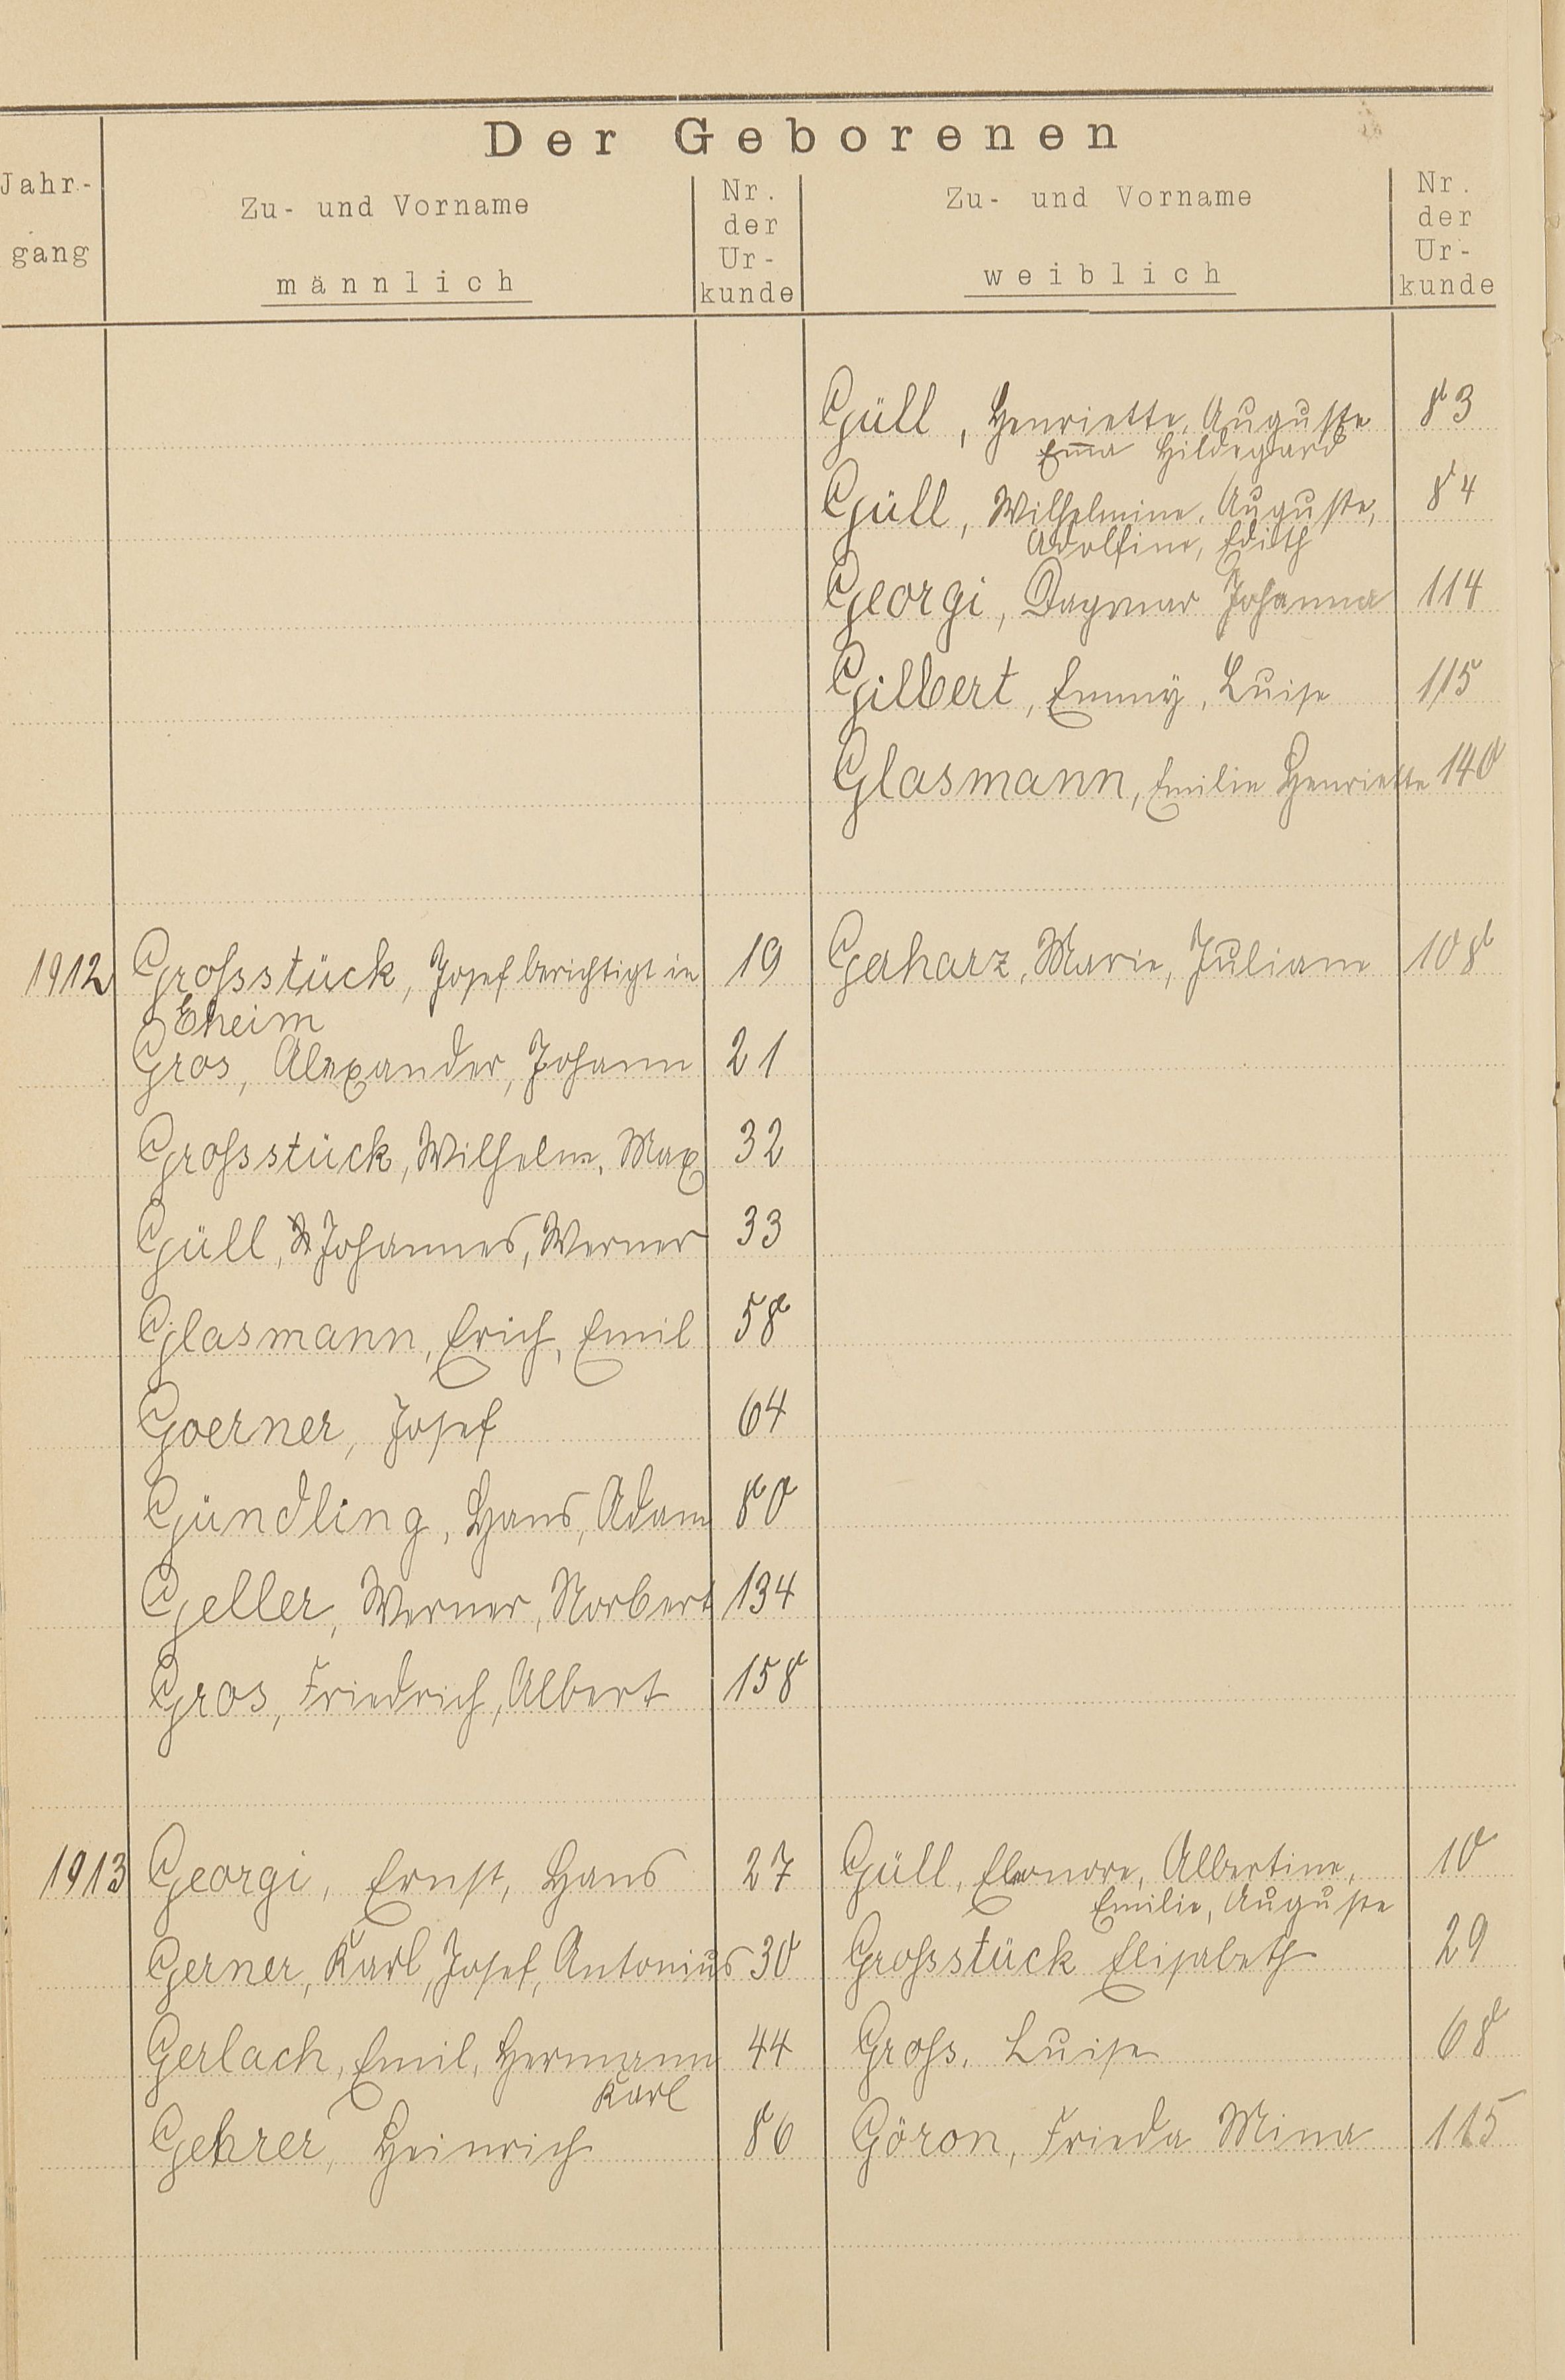 Der Geborenen
Jahr-
gang
Zu- und Vorname
männlich
Nr.
der
Ur-
kunde
Zu- und Vorname
weiblich
Nr.
der
Ur-
kunde
Güll, Henriette, Auguste 83
Em̄a Hildegard
Güll, Wilhelmine, Auguste, 84
Adolfine, Edith
Georgi, Dagmar Johanna 114
Gilbert, Emmy, Luise 115
Glasmann, Emilie Henriette 140
1912 Grossstück, Josef berichtigt in 19 Gerharz, Marie, Juliane 108
Eheim
Gros, Alexander, Johann 21
Grossstück, Wilhelm, Max 32
Güll, Johannes, Werner 33
Glasmann, Erich, Emil 58
Goerner, Josef 64
Gündling, Hans, Adam 80
Geller, Werner, Norbert 134
Gros, Friedrich, Albert 158
1913 Georgi, Ernst, Hans 27 Güll, Eleonore, Albertine, 10
Emilie, Auguste
Gerner, Karl, Josef, Antonius 30 Grossstück Elisabeth 29
Gerlach, Emil, Hermann 44 Gross, Luise 68
Karl
Gehrer, Heinrich 86 Göron, Frieda Mina 115